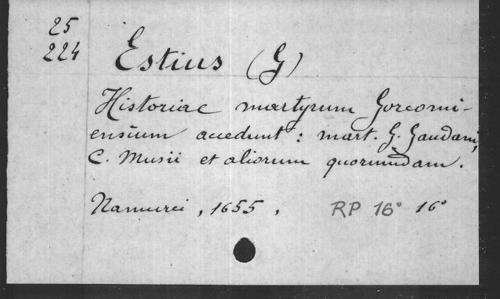 25
224
Estius (G)
Historiae martyrum Gorcomi-
ensium accedunt : mart. G. Gaudani,
C. Musii et aliorum quorumdam.
Namurci, 1655, RP 16° 16°